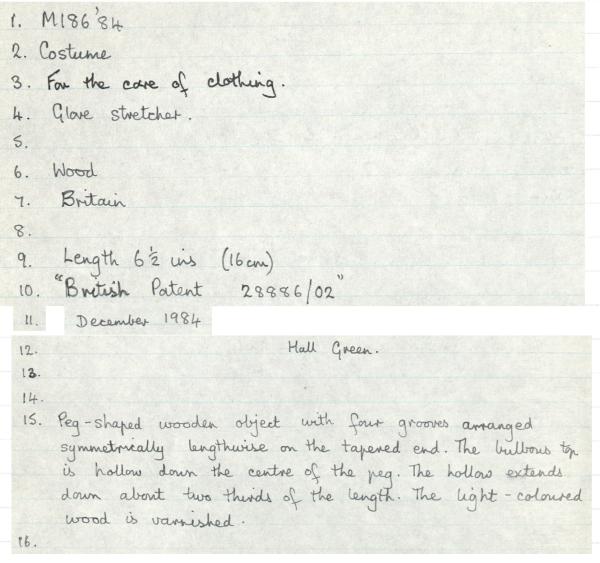 1. M186'84
2. Costume
3. For the care of clothing.
4. Glove stretcher.
5.
6. Wood
7. Britain
8.
9. Length 6½ ins (16cm)
10. "British Patent 28886/02"
11. December 1984
12. Hall Green.
13.
14.
15. Peg-shaped wooden object with four grooves arranged
symmetrically lengthwise on the tapered end. The bulbous top
is hollow down the centre of the peg. The hollow extends
down about two thirds of the length. The light-coloured
wood is varnished.
16.